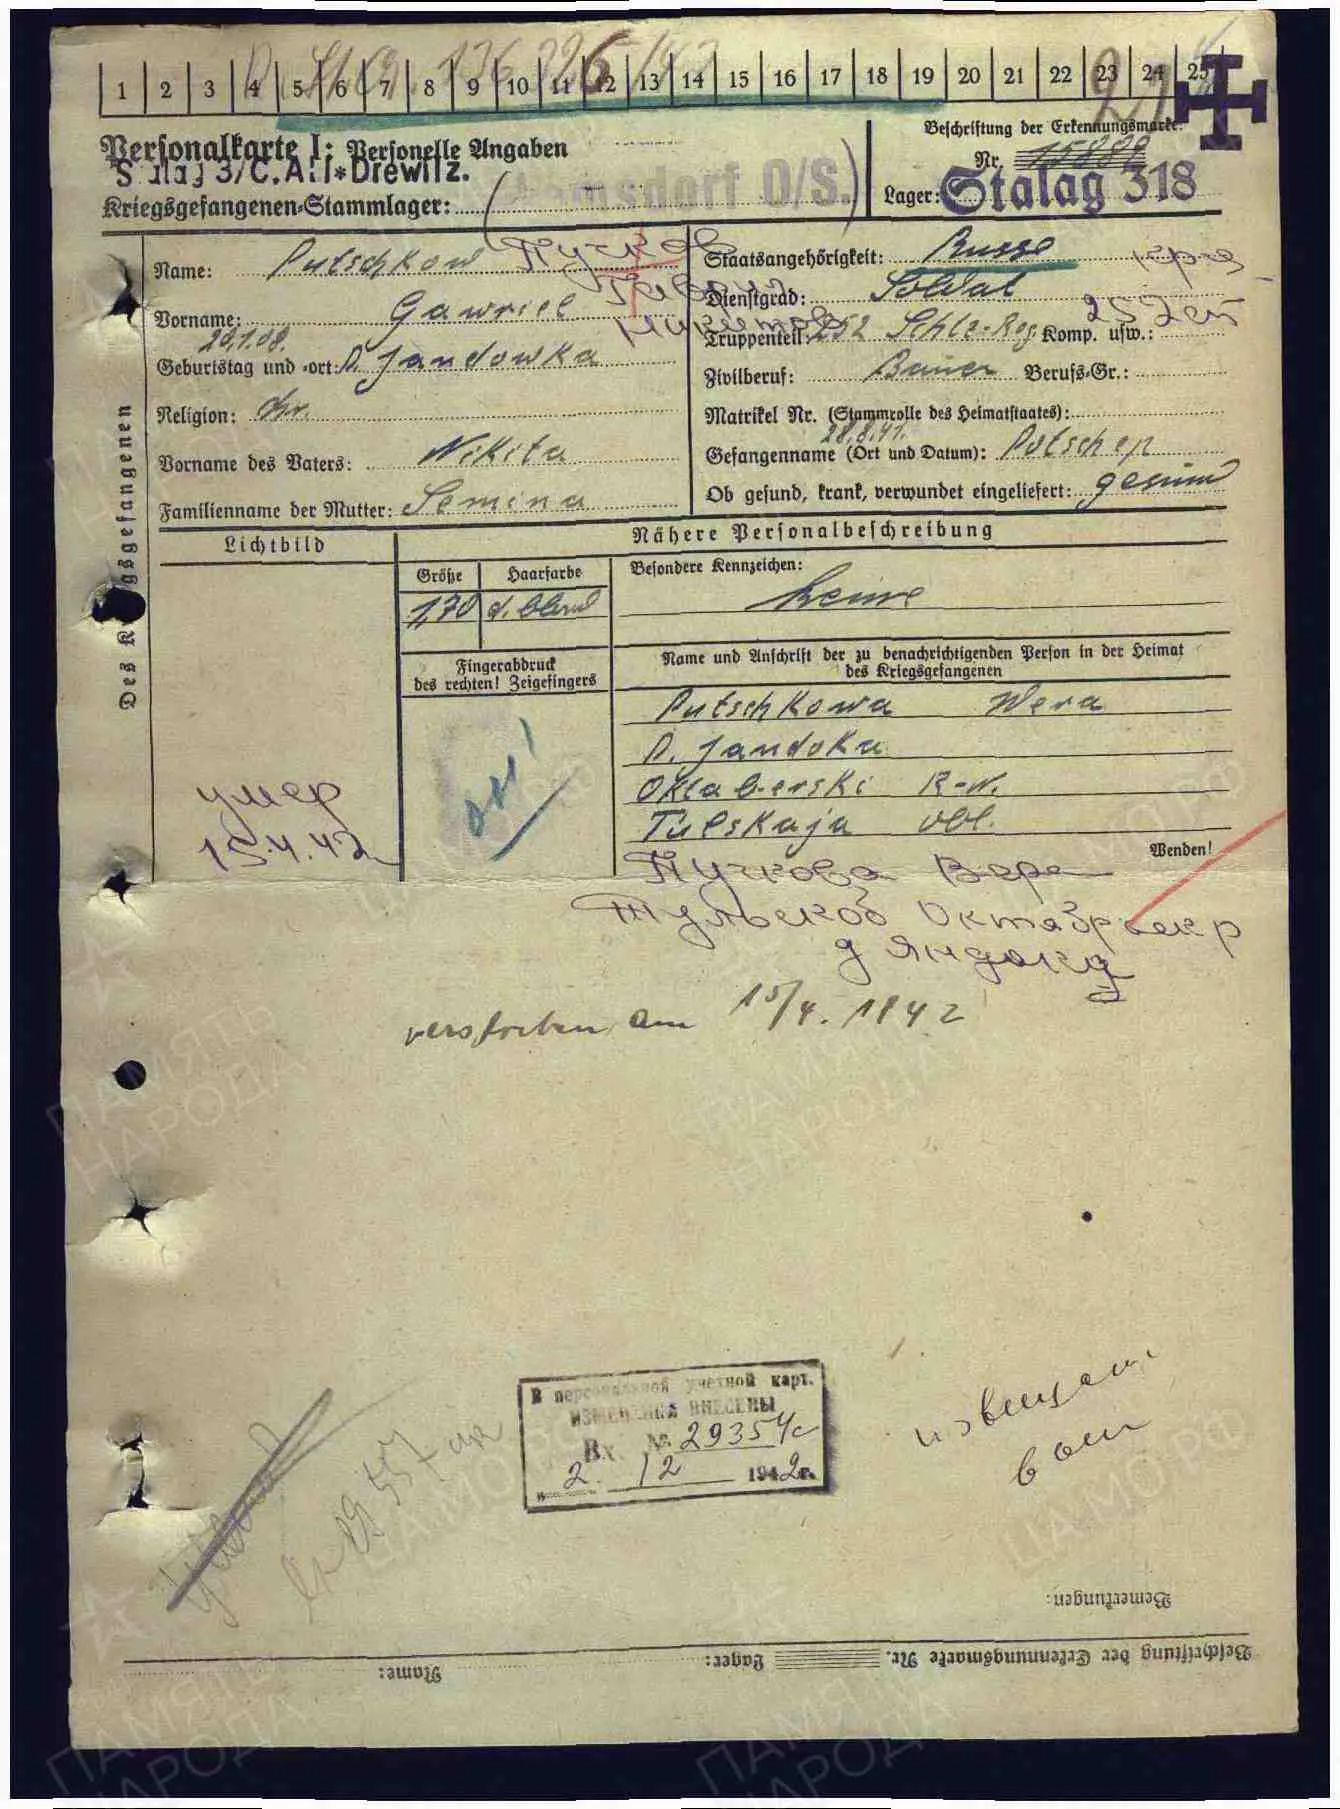 1 2 3 4 5 6 7 8 9 10 11 12 13 14 15 16 17 18 19 20 21 22 23 24 25
Personalkarte I: Personelle Angaben
Beschriftung der Erkennungsmarke
Nr. 15888
Drewitz.
Kriegsgefangenen-Stammlager: Lamsdorf O/S.)
Lager: Stalag 318
Des Kriegsgefangenen
Name: Putschkow Пучков
Vorname: Gawriel
Никитов
29.1.08.
Geburtstag und -ort: D. Jandowka
Religion:
Vorname des Vaters: Nikita
Familienname der Mutter: Semina
Staatsangehörigkeit: Russe
Dienstgrad: Soldat
Truppenteil: 252 Komp. usw.:
Zivilberuf: Bauer Berufs-Gr.:
Matrikel Nr. (Stammrolle des Heimatstaates):
28.8.41.
Gefangenname (Ort und Datum): Potschep
Ob gesund, krank, verwundet eingeliefert: gesund
Lichtbild
Nähere Personalbeschreibung
Größe Haarfarbe
170 d. blond
Besondere Kennzeichen:
keine
Fingerabdruck
des rechten! Zeigefingers
Name und Anschrift der zu benachrichtigenden Person in der Heimat
des Kriegsgefangenen
Putschkowa Wera
D. Jandoka
Oktaberski R-n.
Tulskaja obl.
умер
15.4.42
Wenden!
Пучкова Вера
Тульской Октябрьск р
д Яндока
verstorben am 15/4. 1942
В персональной учетной карт.
ИЗМЕНЕНИЯ ВНЕСЕНЫ
Вх. № 29354с
„2. 12 1942г.
извещен
Bemerkungen:
Beschriftung der Erkennungsmarke Nr. Lager: Name:
ПАМЯТЬ
НАРОДА
ЦАМО.РФ